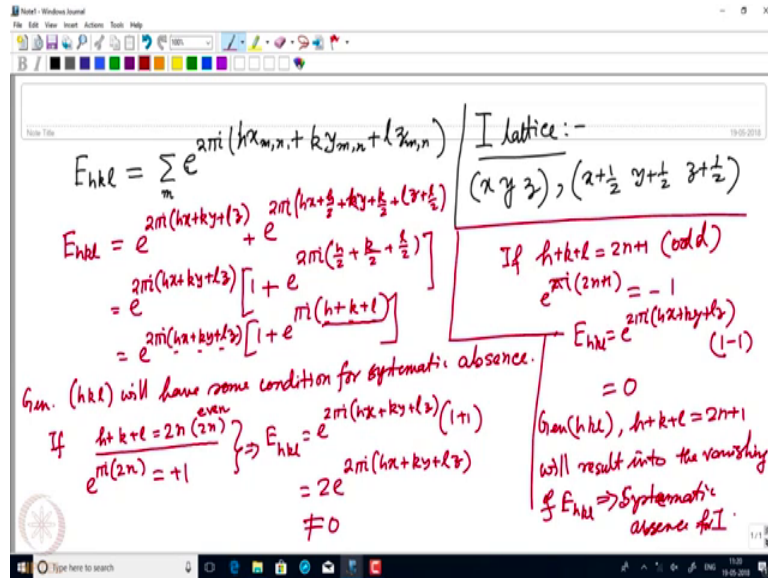 Note1 - Windows Journal
File Edit View Insert Actions Tools Help
100%
B I
Note Title
19-05-2018
E_{hkl} = Σ_m e^{2πi(hx_{m,n} + ky_{m,n} + lz_{m,n})}
I lattice :-
(x y z), (x+1/2 y+1/2 z+1/2)
E_{hkl} = e^{2πi(hx+ky+lz)} + e^{2πi(hx+h/2+ky+k/2+lz+l/2)}
= e^{2πi(hx+ky+lz)} [1 + e^{2πi(h/2+k/2+l/2)}]
= e^{2πi(hx+ky+lz)} [1 + e^{πi(h+k+l)}]
Gen. (hkl) will have some condition for systematic absence.
If h+k+l = 2n (2n) even
e^{πi(2n)} = +1
} ⇒ E_{hkl} = e^{2πi(hx+ky+lz)} (1+1)
= 2e^{2πi(hx+ky+lz)}
≠ 0
If h+k+l = 2n+1 (odd)
e^{πi(2n+1)} = -1
E_{hkl} = e^{2πi(hx+ky+lz)} (1-1)
= 0
Gen (hkl), h+k+l = 2n+1
will result into the vanishing
of E_{hkl} ⇒ Systematic
absence for I.
1/1
Type here to search
ENG
11:20
19-05-2018